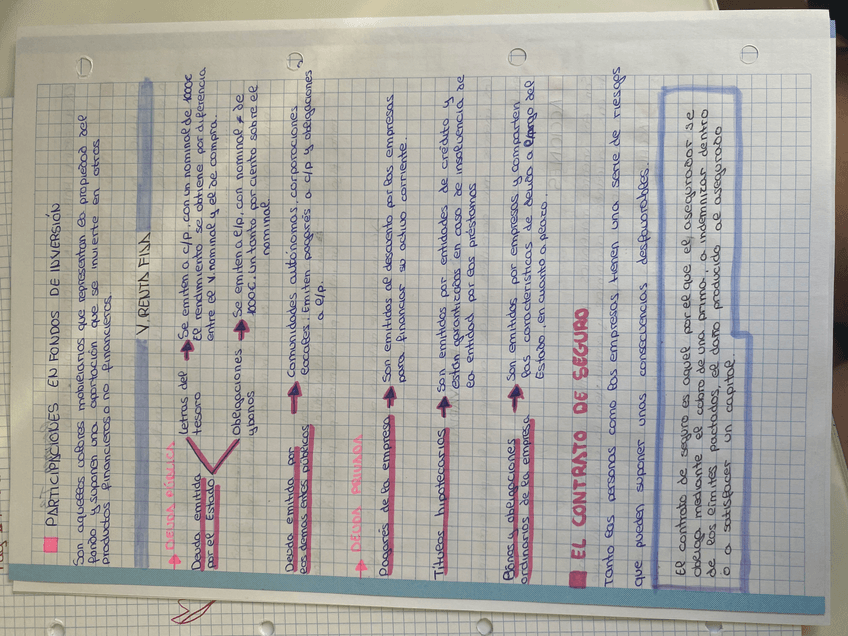 PARTICIPACIONES EN FONDOS DE INVERSIÓN
Son aquellos valores mobiliarios que representan la propiedad del
fondo y suponen una aportación que se invierte en otros
productos financieros o no financieros.
V. RENTA FIJA
DEUDA PÚBLICA
Deuda emitida
por el Estado
letras del
tesoro
Se emiten a c/p, con un nominal de 1000€
El rendimiento se obtiene por diferencia
entre el V. nominal y el de compra.
Obligaciones
y bonos
Se emiten a l/p, con nominal ≠ de
1000€. Un tanto por ciento sobre el
nominal.
Deuda emitida por
los demás entes públicos
Comunidades autónomas, corporaciones
locales. Emiten pagarés a c/p y obligaciones
a l/p.
DEUDA PRIVADA
Pagarés de la empresa
Son emitidos al descuento por las empresas
para financiar su activo corriente.
Títulos hipotecarios
Son emitidos por entidades de crédito y
están garantizados en caso de insolvencia de
la entidad por los préstamos
Bonos y obligaciones
ordinarios de la empresa
Son emitidos por empresas y comparten
las características de deuda a largo del
Estado, en cuanto a plazo.
EL CONTRATO DE SEGURO
Tanto las personas como las empresas tienen una serie de riesgos
que pueden suponer unas consecuencias desfavorables.
El contrato de seguro es aquel por el que el asegurador se
obliga mediante el cobro de una prima, a indemnizar dentro
de los límites pactados, el daño producido al asegurado
o a satisfacer un capital